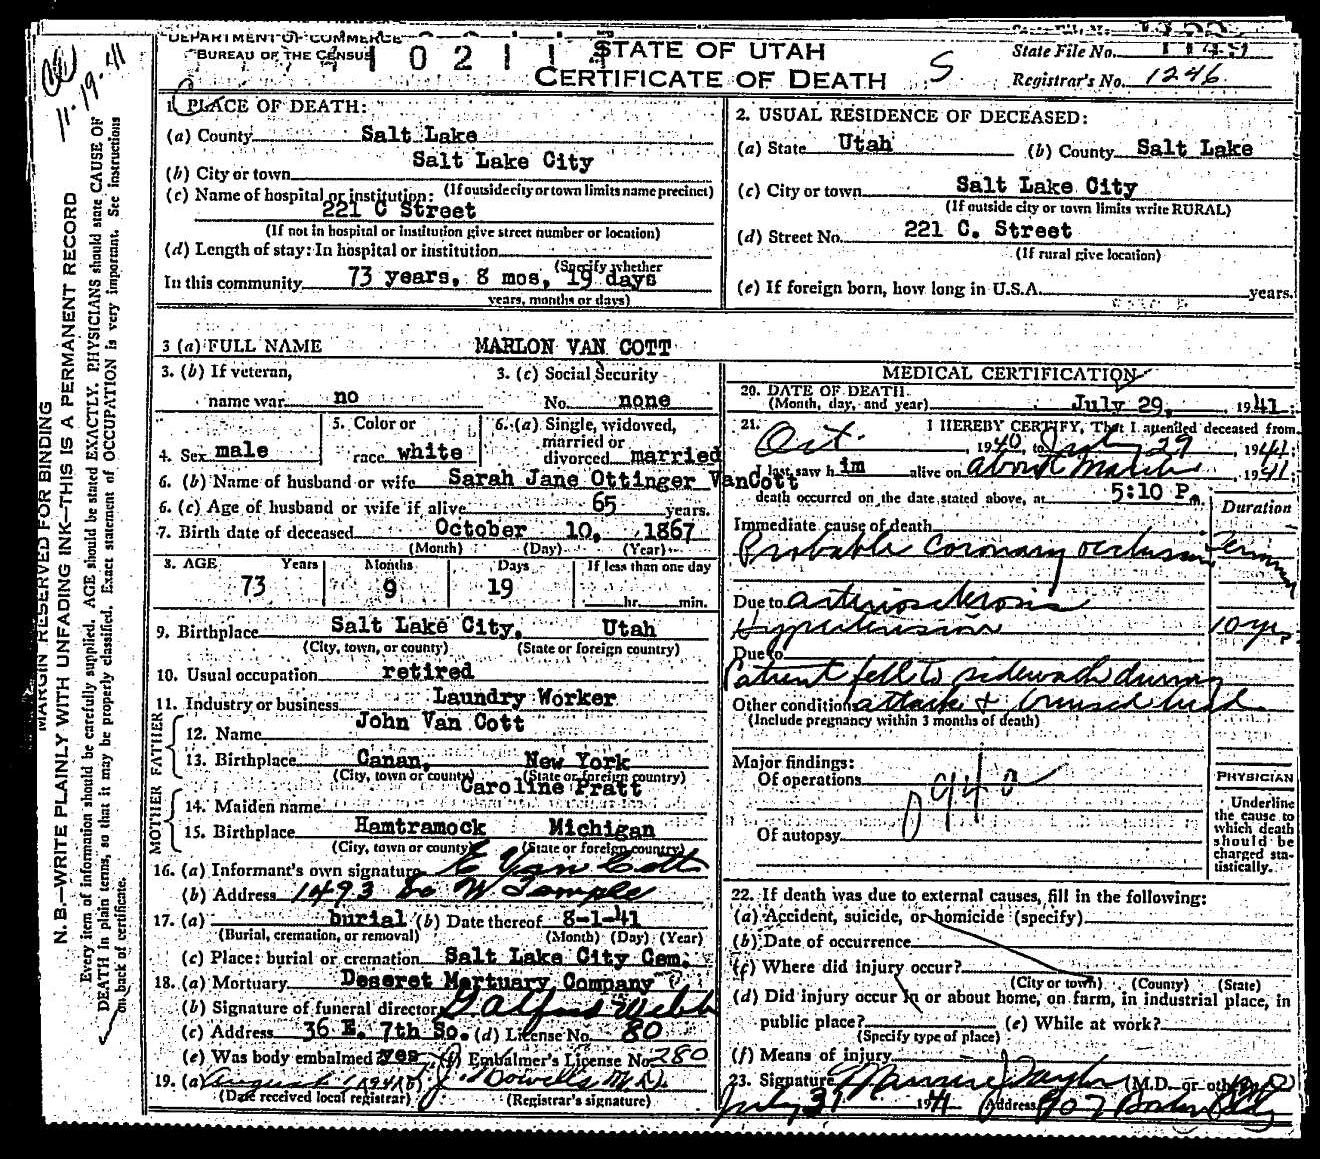 11-19-41
DEPARTMENT OF COMMERCE
BUREAU OF THE CENSUS
STATE OF UTAH
CERTIFICATE OF DEATH
S
State File No.
Registrar's No. 1246
MARGIN RESERVED FOR BINDING
N. B.—WRITE PLAINLY WITH UNFADING INK—THIS IS A PERMANENT RECORD
Every item of information should be carefully supplied. AGE should be stated EXACTLY. PHYSICIANS should state CAUSE OF
DEATH in plain terms, so that it may be properly classified. Exact statement of OCCUPATION is very important. See instructions
on back of certificate.
1. PLACE OF DEATH:
(a) County Salt Lake
(b) City or town Salt Lake City
(If outside city or town limits name precinct)
(c) Name of hospital or institution:
221 C Street
(If not in hospital or institution give street number or location)
(d) Length of stay: In hospital or institution
(Specify whether
In this community 73 years, 8 mos, 19 days
years, months or days)
2. USUAL RESIDENCE OF DECEASED:
(a) State Utah (b) County Salt Lake
(c) City or town Salt Lake City
(If outside city or town limits write RURAL)
(d) Street No. 221 C. Street
(If rural give location)
(e) If foreign born, how long in U.S.A. years.
3 (a) FULL NAME MARLON VAN COTT
3. (b) If veteran, name war no
3. (c) Social Security No. none
4. Sex male
5. Color or race white
6. (a) Single, widowed, married or divorced married
6. (b) Name of husband or wife Sarah Jane Ottinger VanCott
6. (c) Age of husband or wife if alive 65 years.
7. Birth date of deceased October 10, 1867
(Month) (Day) (Year)
8. AGE Years Months Days If less than one day
73 9 19 hr. min.
9. Birthplace Salt Lake City, Utah
(City, town, or county) (State or foreign country)
10. Usual occupation retired
11. Industry or business Laundry Worker
FATHER
12. Name John Van Cott
13. Birthplace Canan, New York
(City, town or county) (State or foreign country)
MOTHER
14. Maiden name Caroline Pratt
15. Birthplace Hamtramock Michigan
(City, town or county) (State or foreign country)
16. (a) Informant's own signature E Van Cott
(b) Address 1493 So W Temple
17. (a) burial (b) Date thereof 8-1-41
(Burial, cremation, or removal) (Month) (Day) (Year)
(c) Place: burial or cremation Salt Lake City Cem.
18. (a) Mortuary Deseret Mortuary Company
(b) Signature of funeral director Webb
(c) Address 36 E. 7th So. (d) License No. 80
(e) Was body embalmed yes (f) Embalmer's License No. 280
19. (a) August
(Date received local registrar) (Registrar's signature)
MEDICAL CERTIFICATION
20. DATE OF DEATH
(Month, day, and year) July 29, 1941;
21. I HEREBY CERTIFY, That I attended deceased from
Oct. 1940, to July 29, 1941;
I last saw him alive on about March, 1941;
death occurred on the date stated above, at 5:10 P.m.
Duration
Immediate cause of death
Probable coronary occlusion
Due to arteriosclerosis
Hypertension 10 yrs
Due to
Patient fell to sidewalk during
Other conditions attack & bruised head
(Include pregnancy within 3 months of death)
Major findings:
Of operations
Of autopsy
PHYSICIAN
Underline the cause to which death should be charged statistically.
22. If death was due to external causes, fill in the following:
(a) Accident, suicide, or homicide (specify)
(b) Date of occurrence
(c) Where did injury occur?
(City or town) (County) (State)
(d) Did injury occur in or about home, on farm, in industrial place, in
public place? (e) While at work?
(Specify type of place)
(f) Means of injury
23. Signature Taylor (M.D. or other)
July 31 1941 Address 907